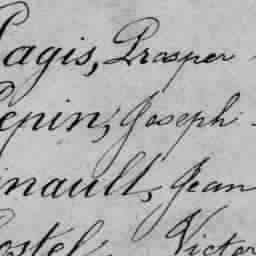 Pagis, Prosper
Pepin, Joseph
inault, Jean
ostel, Victor